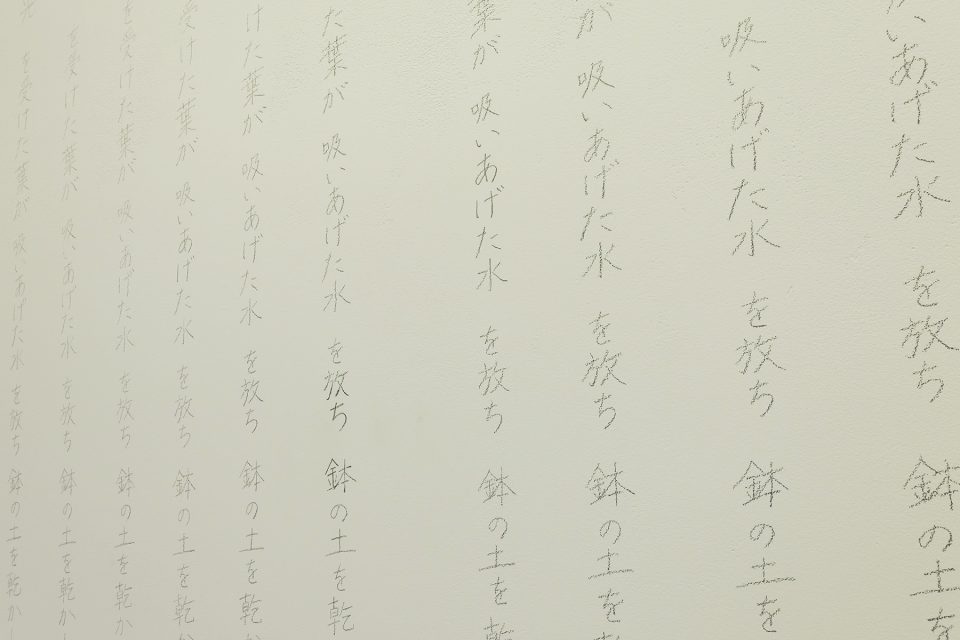 いあげた水 を放ち 鉢の土を
吸いあげた水 を放ち 鉢の土を
が 吸いあげた水 を放ち 鉢の土を
葉が 吸いあげた水 を放ち 鉢の土を乾
た葉が 吸いあげた水 を放ち 鉢の土を乾
けた葉が 吸いあげた水 を放ち 鉢の土を乾か
受けた葉が 吸いあげた水 を放ち 鉢の土を乾か
を受けた葉が 吸いあげた水 を放ち 鉢の土を乾か
を受けた葉が 吸いあげた水 を放ち 鉢の土を乾か
光 を受けた葉が 吸いあげた水 を放ち 鉢の土を乾か